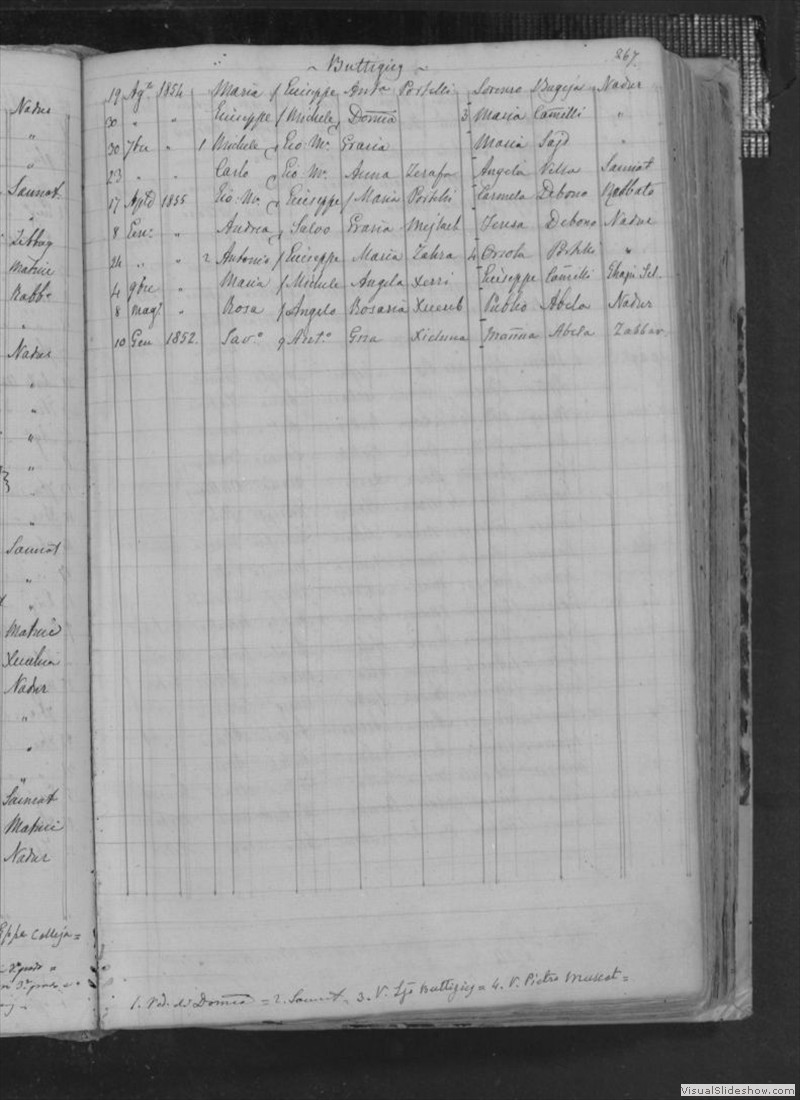 Nadur
"
"
Sannat
"
Zebbug
Matrice
Rabbo
"
Nadur
"
"
"
"
"
Sannat
"
"
Matrice
Xeuchia
Nadur
"
"
"
Sannat
Matrice
Nadur
Eppe Calleja =
267
~ Buttigieg ~
19 Ago 1854 Maria f Giuseppe Anta Portelli Lorenzo Bugeja Nadur
30 " " Giuseppe f Michele Domca 3 Maria Camilli "
30 7bre " 1 Michele Gio: Ma. Grazia Maria Said "
23 " " Carlo Gio M. Anna Zerafa Angela Vella Sannat
17 1855 Gio: M. Giuseppe f Maria Portelli Carmela Debono Rabbato
8 Gen: " Andrea Salvo Grazia Mejlach Teresa Debono Nadur
24 " " 2 Antonio f Giuseppe Maria Zahra 4 Orsola Portelli "
4 9bre " Maria f Michele Angela Xerri Giuseppe Camilli
8 Magg " Rosa f Angelo Rosaria Xuereb Publio Abela Nadur
10 Gen 1852. Savo Anto Gra Xicluna Marina Abela Zabbar
1. Ved. di Domca = 2. Sannat = 3. V. Buttigieg = 4. V. Pietro Muscat =
VisualSlideshow.com